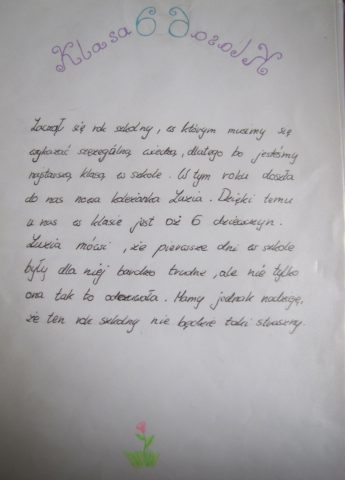 Klasa 6 6 Klasa
Zaczął się rok szkolny, w którym musimy się
wykazać szczególną wiedzą, dlatego bo jesteśmy
najstarszą klasą w szkole. W tym roku doszła
do nas nowa koleżanka Luzia. Dzięki temu
u nas w klasie jest już 6 dziewczyn.
Luzia mówi, że pierwsze dni w szkole
były dla niej bardzo trudne, ale nie tylko
ona tak to odczuwała. Mamy jednak nadzieję,
że ten rok szkolny nie będzie taki straszny.